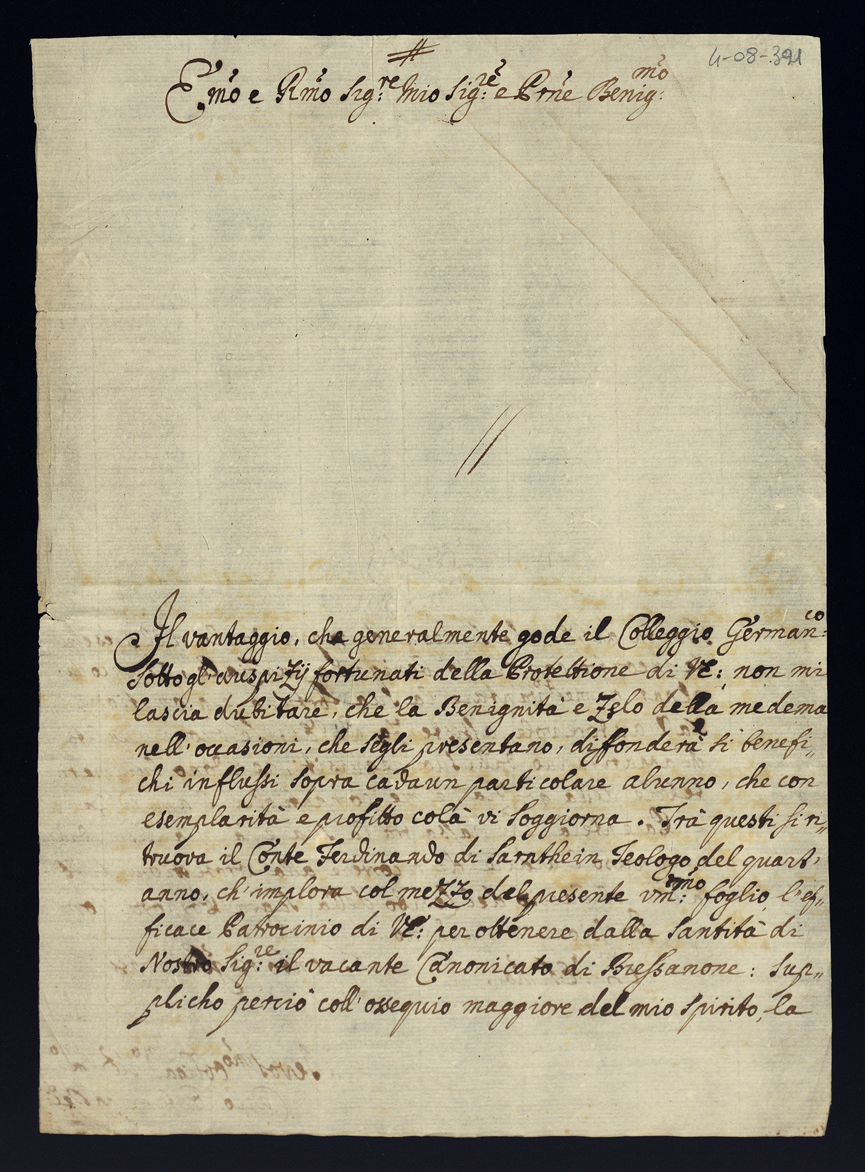 4-08-391
E.mo e R.mo Sig:re Mio Sig:re e Prñe Benig:mo
Il vantaggio, che generalmente gode il Colleggio German:co
sotto gl'auspizij fortunati della Protettione di VE: non mi
lascia dubitare, che la Benignità e Zelo della medema
nell'occasioni, che segli presentano, diffonderà si benefi„
chi influssi sopra cadaun particolare alunno, che con
esemplarità e profitto colà vi soggiorna. Trà questi si ri„
truova il Conte Ferdinando di Sarnthein Teologo del quart'
anno, ch'implora col mezzo del presente vm:mo foglio l'ef„
ficace Patrocinio di VE: per ottenere dalla Santità di
Nostro Sig:re il vacante Canonicato di Bressanone: sup„
plicho perciò coll'ossequio maggiore del mio spirito, la